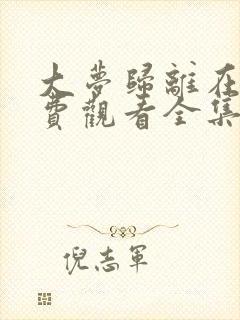 大夢歸離在
費觀看全集
倪志軍